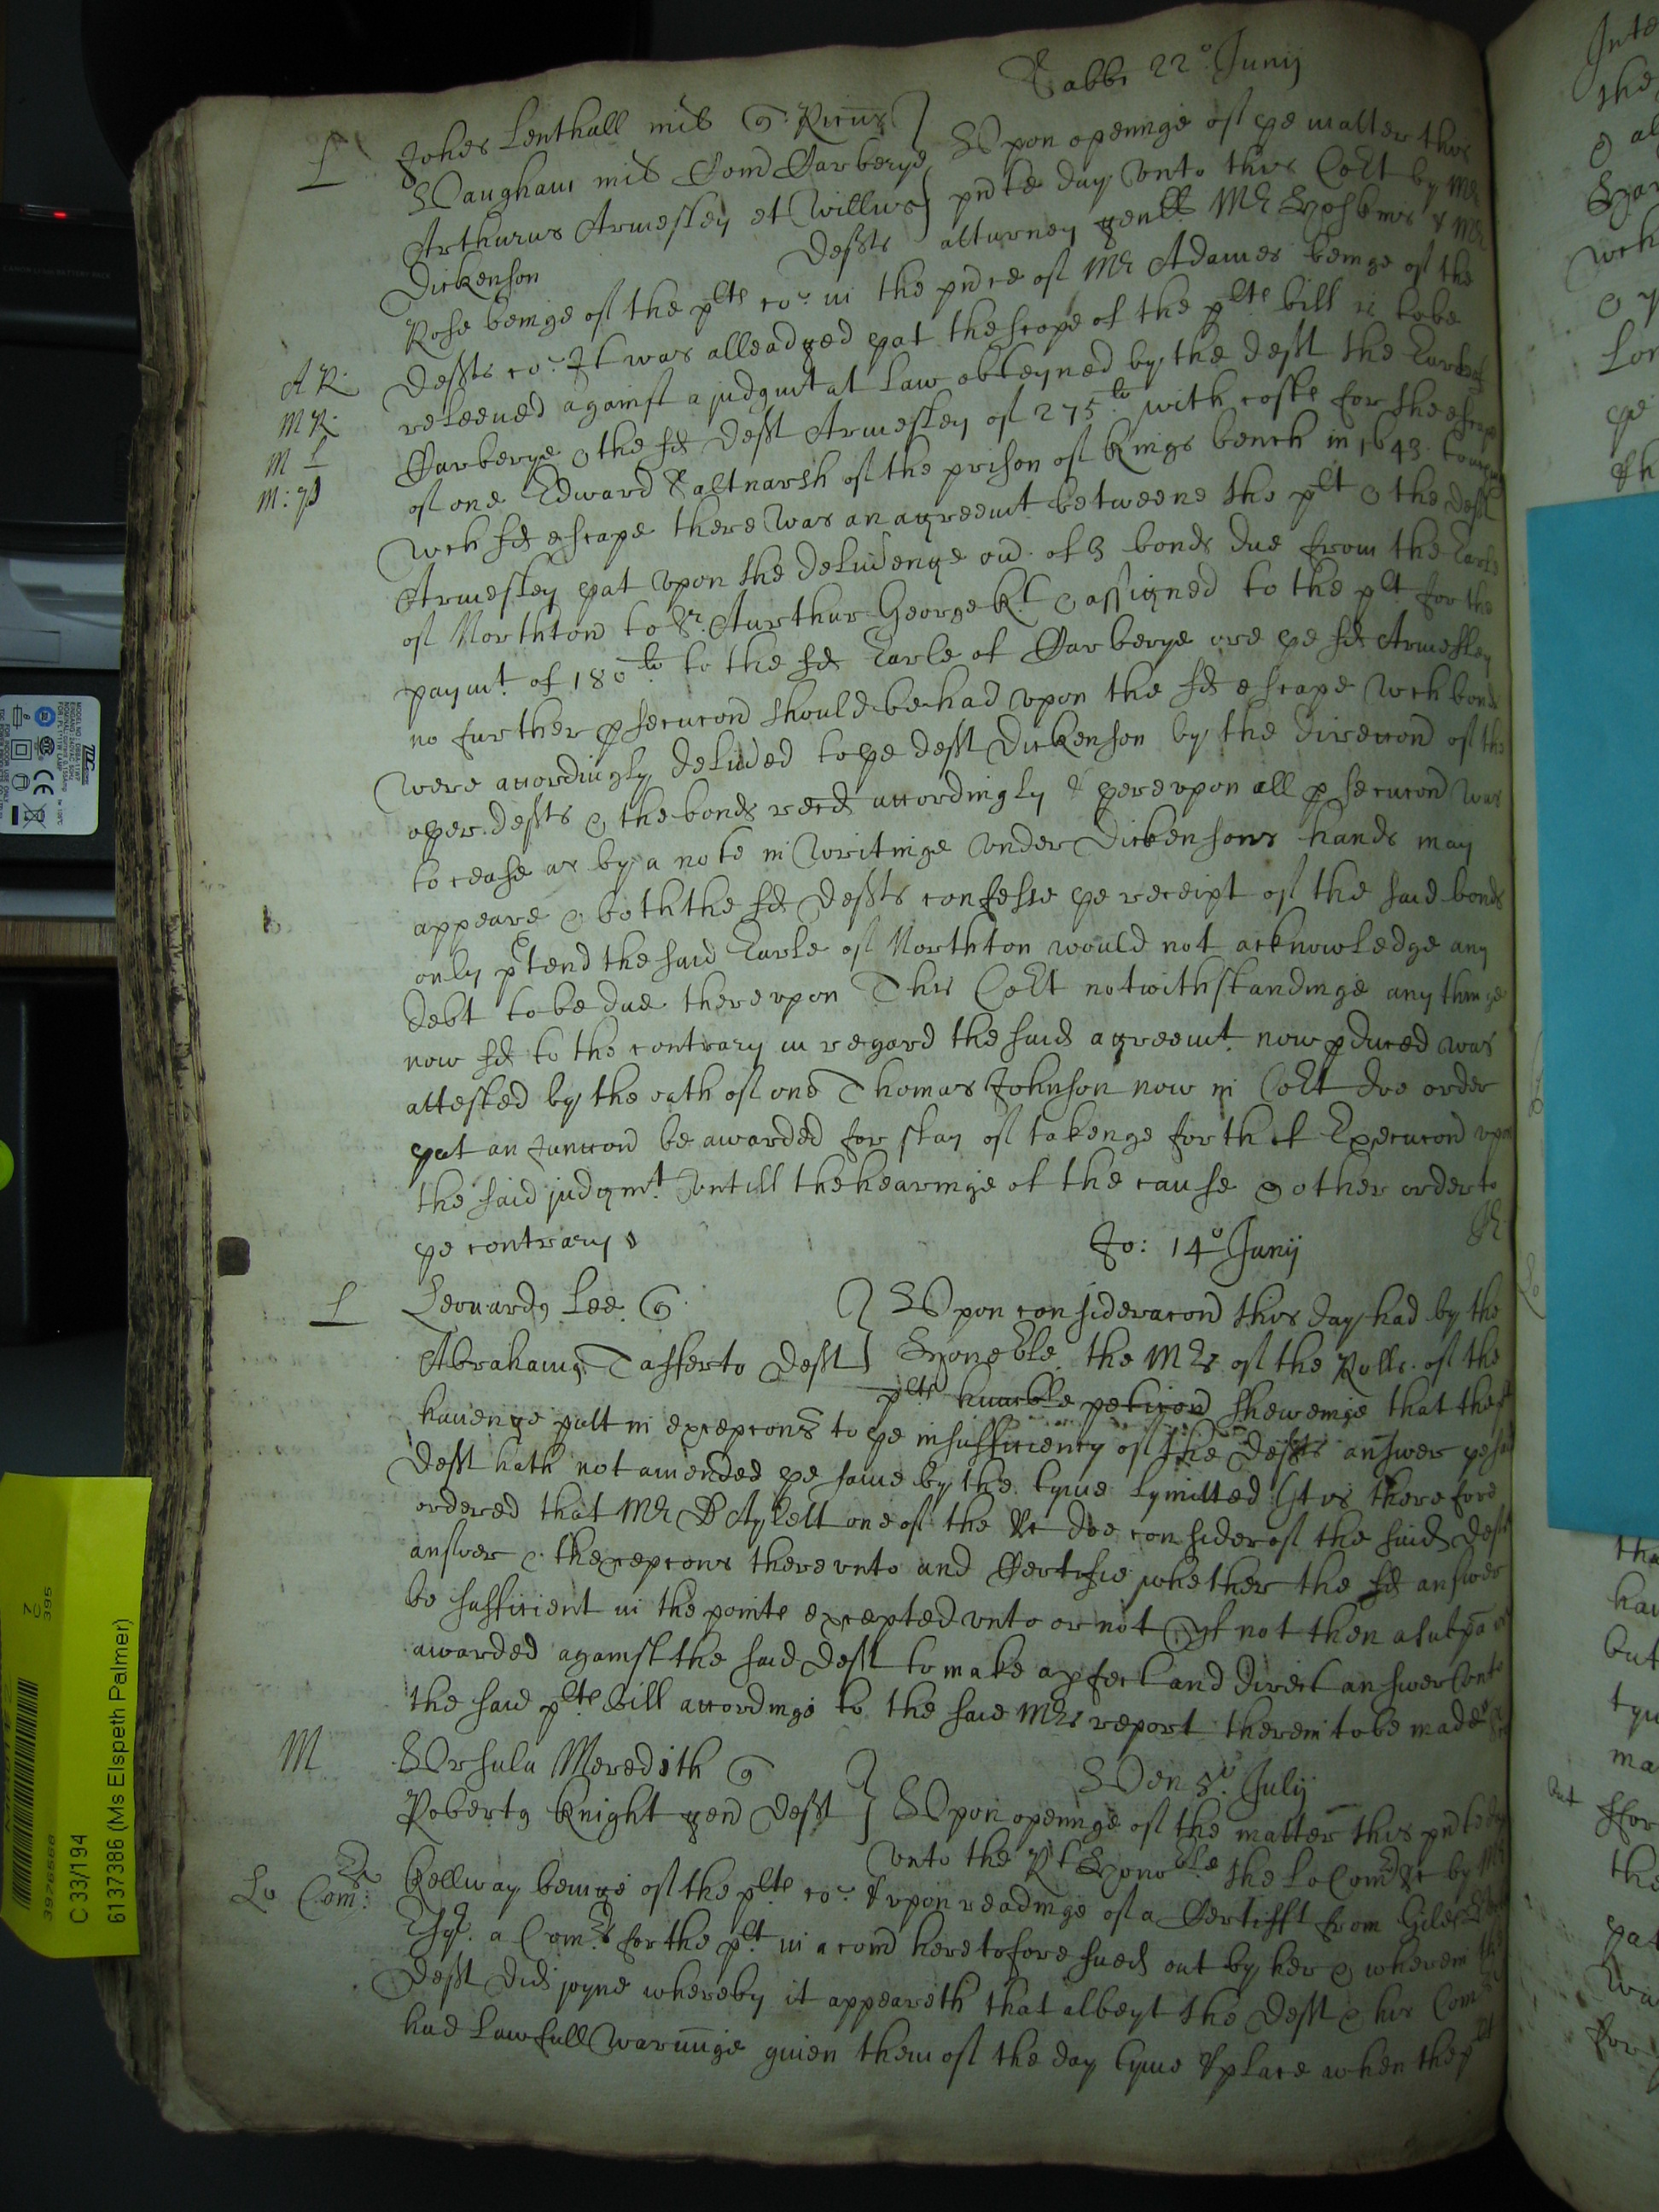 Sabbi 22o Junij
L Johes Lenthall mil q: Ricus } Upon openinge of ye matter this
Vaughan mil Com Carberye pnte day unto this Cort by Mr
Arthurus Armesley et Willus } atturney genll Mr Hoskins & Mr
Dickenson Defts
Rose beinge of the plts co: in the pnce of Mr Adames beinge of the
Defts co: It was alleadged yat the scope of the plts bill is to be
A R. releeved against a judgmt at law obteyned by the deft the Earle of
M R. Carberye & the sd deft Armesley of 275li with costs for the escape
M L of one Edward Saltmarsh of the prison of Kings bench in 1643.
M: D wch sd escape there was an agreemt betweene the plt & the deft
Armesley yat upon the deliveringe ovr of 3 bonds due from the Earle
of Northton to Sr. Aurthur George Kt & assigned to the plt for the
paymt of 180li to the sd Earle of Carberye ore ye sd Armesley
no further psecucon should be had upon the sd escape wch bonds
were accordingly delivred to ye deft Dickenson by the direccon of the
oyer defts & the bonds recd accordingly & yereupon all psecucon was
to cease as by a note in writinge under Dickensons hands may
appeare & both the sd defts confesse ye receipt of the said bonds
only ptend the said Earle of Northton would not acknowledge any
debt to be due thereupon This Cort notwithstandinge any thinge
now sd to the contrary in regard the said agreemt now pduced was
attested by the oath of one Thomas Johnson now in Cort doe order
yat an Junccon be awarded for stay of takenge forth of Execucon upon
the said judgmt untill the hearinge of the cause & other order to
ye contrary
Jo: 14o Junij
L Leonardus Lee q } Upon consideracon this day had by the
Abrahamus Tasserto Deft } Honoble the Mr of the Rolls of the
plts humble peticon shewenge that the plt
havenge putt in excepcons to ye insufficiency of the defts answer ye said
Deft hath not amended ye same by the tyme lymitted It is therefore
ordered that Mr Dr Aylett one of the &c doe consider of the said defts
answer & thexcepcons thereunto and Certifie whether the sd answer
be sufficient in the points excepted unto or not If not then a subpa
awarded against the said deft to make a pfect and direct answer unto
the said plts bill accordinge to the said Mrs report therein to be made
M Ursula Meredith q } Ven 5o Julij
Robertus Knight gen Deft } Upon openinge of the matter this pnte day
unto the Rt Honoble the Lo Comrs &c by Mr
Lo Comrs: Kellway beinge of the plts co: & upon readinge of a Certifft from Giles
Esqr. a Comr for the plt in a comd heretofore sued out by her & wherein the
deft did joyne whereby it appeareth that albeyt the deft & his Comrs
had lawfull warninge given them of the day tyme & place when the plt
C 33/194
61373386 (Ms Elspeth Palmer)
3976568
7
C
395